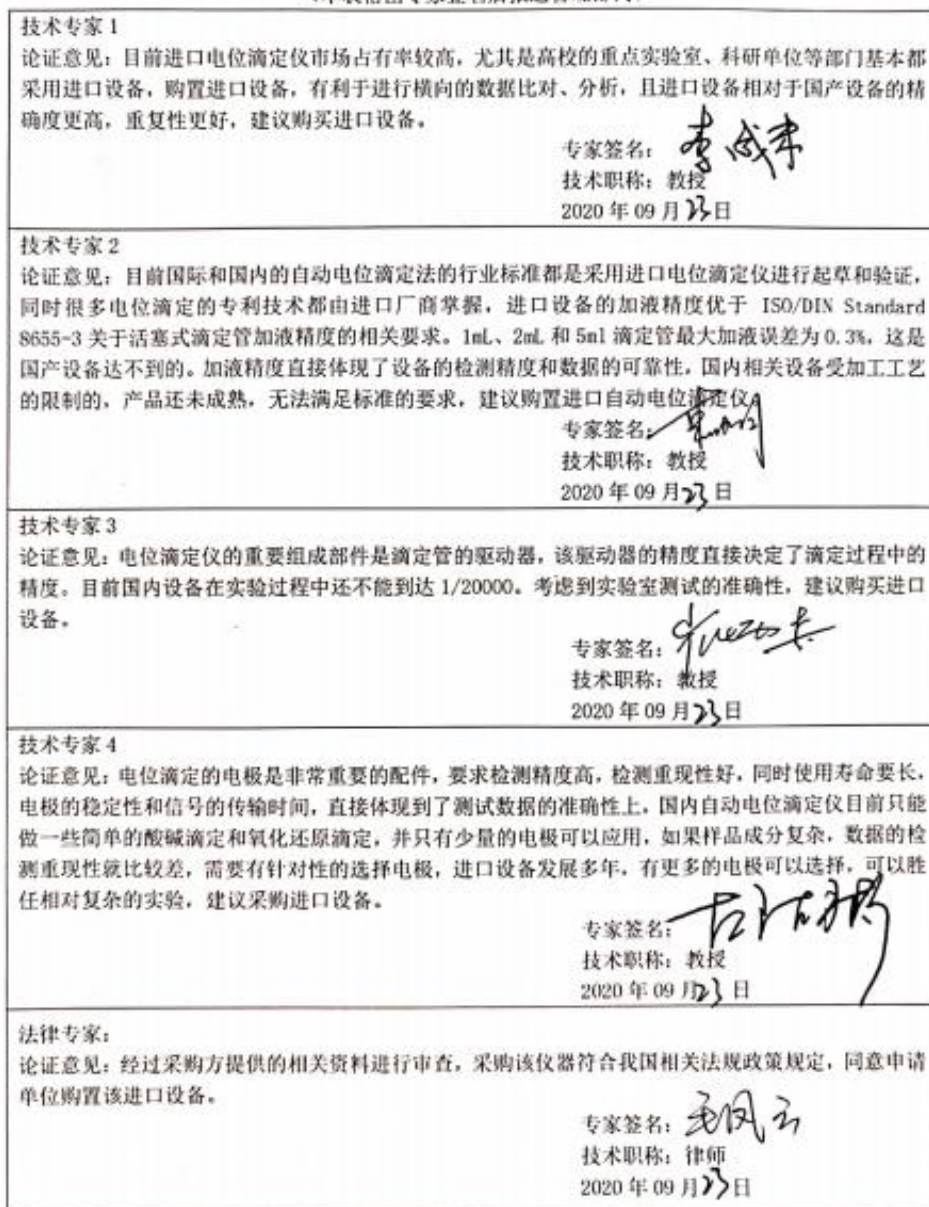 技术专家 1
论证意见：目前进口电位滴定仪市场占有率较高，尤其是高校的重点实验室、科研单位等部门基本都
采用进口设备，购置进口设备，有利于进行横向的数据比对、分析，且进口设备相对于国产设备的精
确度更高，重复性更好，建议购买进口设备。
专家签名：
技术职称：教授
2020 年 09 月 23 日
技术专家 2
论证意见：目前国际和国内的自动电位滴定法的行业标准都是采用进口电位滴定仪进行起草和验证，
同时很多电位滴定的专利技术都由进口厂商掌握，进口设备的加液精度优于 ISO/DIN Standard
8655-3 关于活塞式滴定管加液精度的相关要求。1mL、2mL 和 5ml 滴定管最大加液误差为 0.3%，这是
国产设备达不到的。加液精度直接体现了设备的检测精度和数据的可靠性，国内相关设备受加工工艺
的限制的，产品还未成熟，无法满足标准的要求，建议购置进口自动电位滴定仪。
专家签名：
技术职称：教授
2020 年 09 月 23 日
技术专家 3
论证意见：电位滴定仪的重要组成部件是滴定管的驱动器，该驱动器的精度直接决定了滴定过程中的
精度。目前国内设备在实验过程中还不能到达 1/20000。考虑到实验室测试的准确性，建议购买进口
设备。
专家签名：
技术职称：教授
2020 年 09 月 23 日
技术专家 4
论证意见：电位滴定的电极是非常重要的配件，要求检测精度高，检测重现性好，同时使用寿命要长，
电极的稳定性和信号的传输时间，直接体现到了测试数据的准确性上，国内自动电位滴定仪目前只能
做一些简单的酸碱滴定和氧化还原滴定，并只有少量的电极可以应用，如果样品成分复杂，数据的检
测重现性就比较差，需要有针对性的选择电极，进口设备发展多年，有更多的电极可以选择，可以胜
任相对复杂的实验，建议采购进口设备。
专家签名：
技术职称：教授
2020 年 09 月 23 日
法律专家：
论证意见：经过采购方提供的相关资料进行审查，采购该仪器符合我国相关法规政策规定，同意申请
单位购置该进口设备。
专家签名：毛凤云
技术职称：律师
2020 年 09 月 23 日